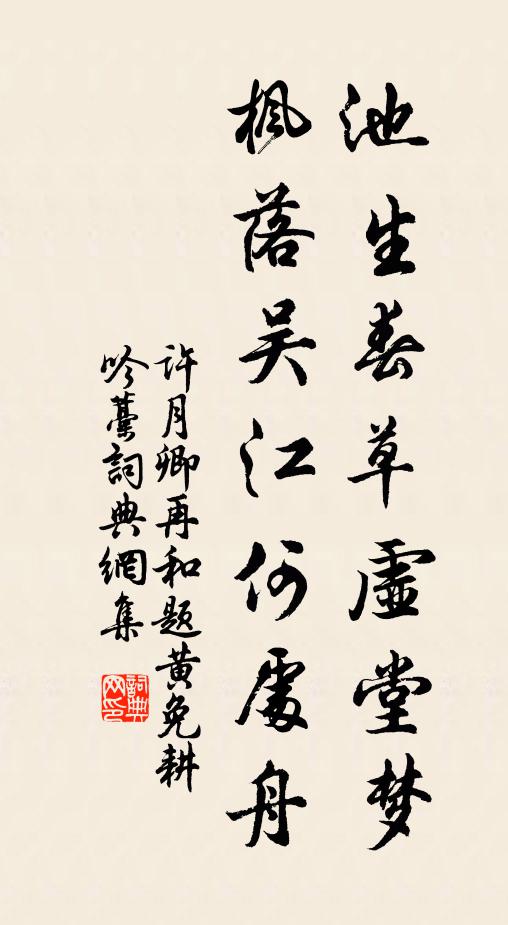 池生春草虛堂梦
枫落吴江何處舟
许月卿再和题黄免耕
吟藁詞典網集
詞典
网印